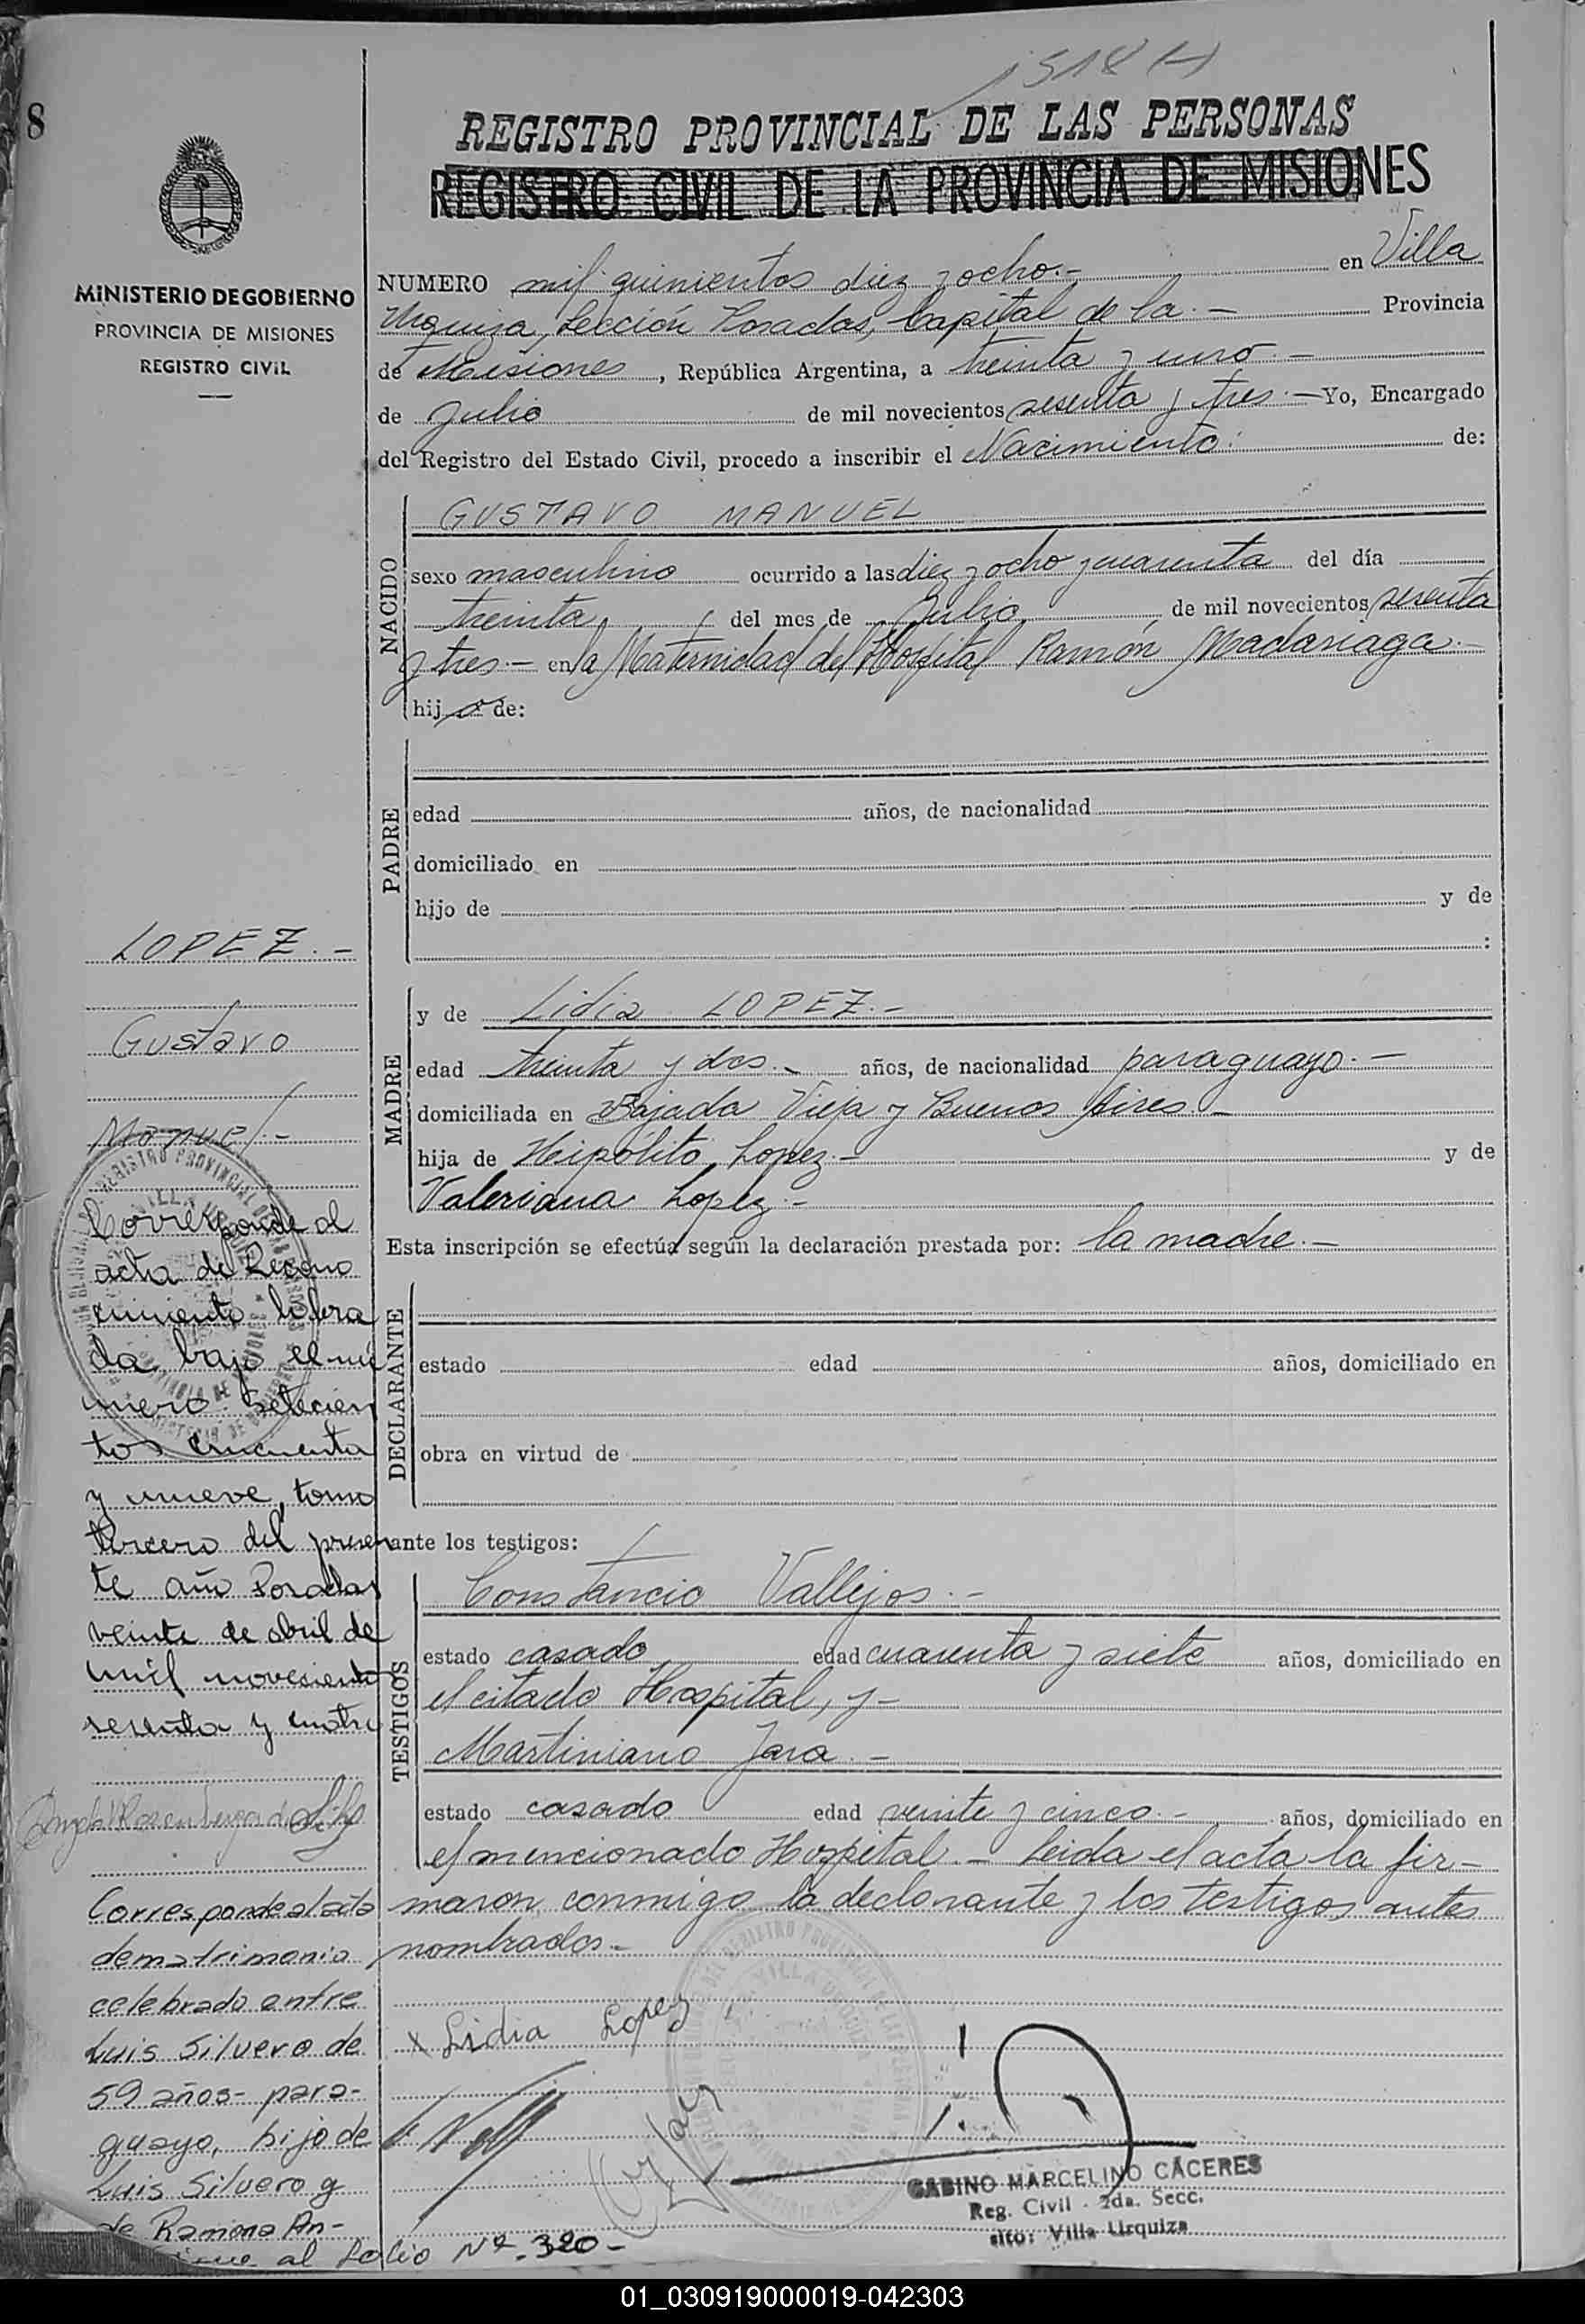 1518 (-)
8
REGISTRO PROVINCIAL DE LAS PERSONAS
REGISTRO CIVIL DE LA PROVINCIA DE MISIONES
MINISTERIO DE GOBIERNO
PROVINCIA DE MISIONES
REGISTRO CIVIL
NUMERO mil quinientos diez y ocho.- en Villa
Urquiza, Sección Posadas, Capital de la.- Provincia
de Misiones, República Argentina, a treinta y uno.-
de Julio de mil novecientos sesenta y tres.- Yo, Encargado
del Registro del Estado Civil, procedo a inscribir el Nacimiento: de:
NACIDO
GUSTAVO MANUEL
sexo masculino ocurrido a las diez y ocho y cuarenta del día
treinta del mes de Julio de mil novecientos sesenta
y tres.- en la Maternidad del Hospital Ramón Madariaga.-
hijo de:
PADRE
edad años, de nacionalidad
domiciliado en
hijo de y de
:
MADRE
y de Lidia LOPEZ.-
edad treinta y dos.- años, de nacionalidad paraguayo.-
domiciliada en Bajada Vieja y Buenos Aires.-
hija de Heipólito Lopez.- y de
Valeriana Lopez.-
Esta inscripción se efectúa según la declaración prestada por: la madre.-
DECLARANTE
estado edad años, domiciliado en
obra en virtud de
ante los testigos:
TESTIGOS
Constancio Vallejos.-
estado casado edad cuarenta y siete años, domiciliado en
el citado Hospital, y-
Martiniano Jara.-
estado casado edad veinte y cinco.- años, domiciliado en
el mencionado Hospital.- Leida el acta la fir-
maron conmigo la declarante y los testigos antes
nombrados.-
x Lidia Lopez
GABINO MARCELINO CÁCERES
Reg. Civil - 2da. Secc.
sito: Villa Urquiza
LOPEZ.-
Gustavo
Manuel.-
Corresponde al
acta de Recono
cimiento labra
da bajo el nú
mero setecien
tos cincuenta
y nueve, tomo
tercero del presen
te año Posadas
veinte de abril de
mil novecientos
sesenta y cuatro
Corresponde al acta
de matrimonio
celebrado entre
Luis Silvero de
59 años- para-
guayo, hijo de
Luis Silvero y
de Ramona An-
sigue al Folio Nº 320-
01_030919000019-042303